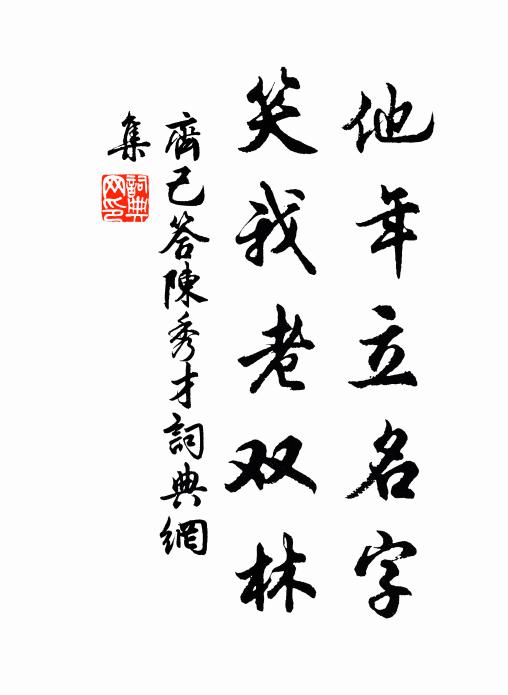 他年立名字
笑我老双林
齊己答陳秀才詞典網
集
詞典
网印